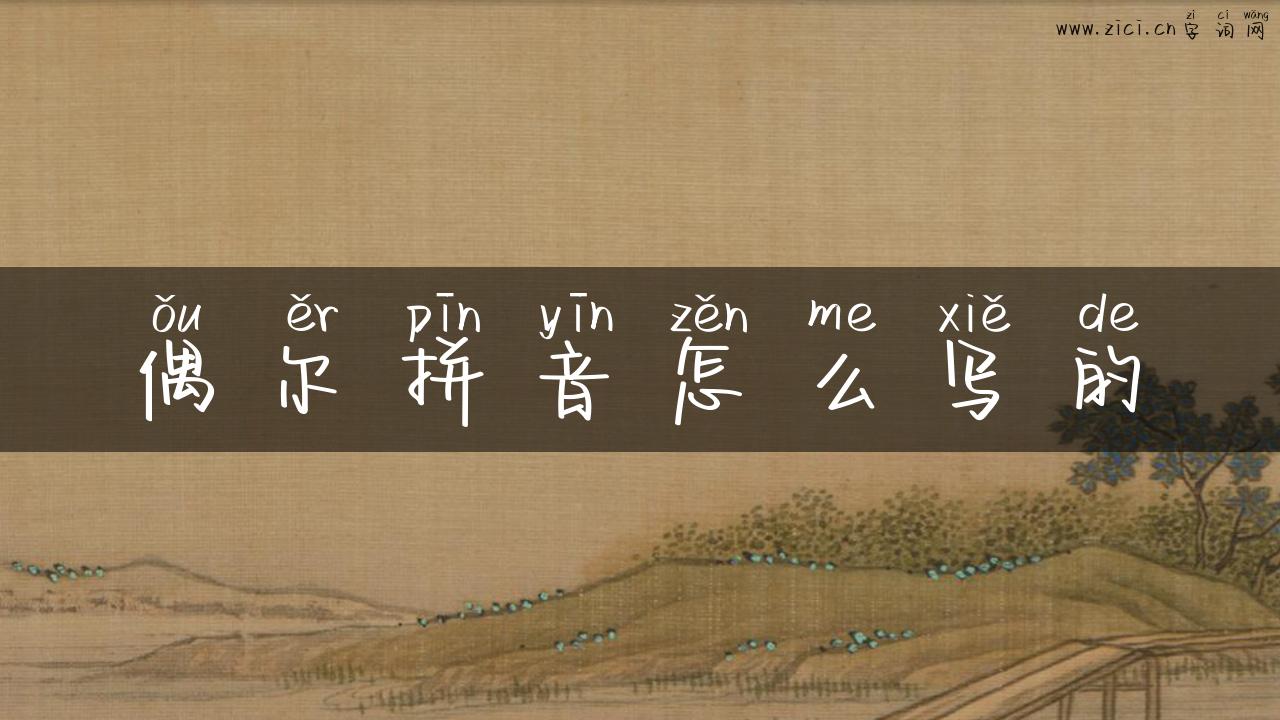 zì cí wǎng
www.zici.cn 字词网
ǒu ěr pīn yīn zěn me xiě de
偶尔拼音怎么写的